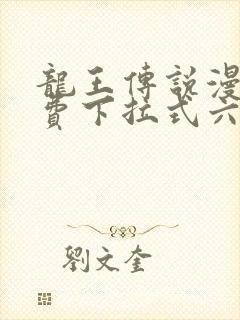 龍王傳說漫
費下拉式六
劉文奎